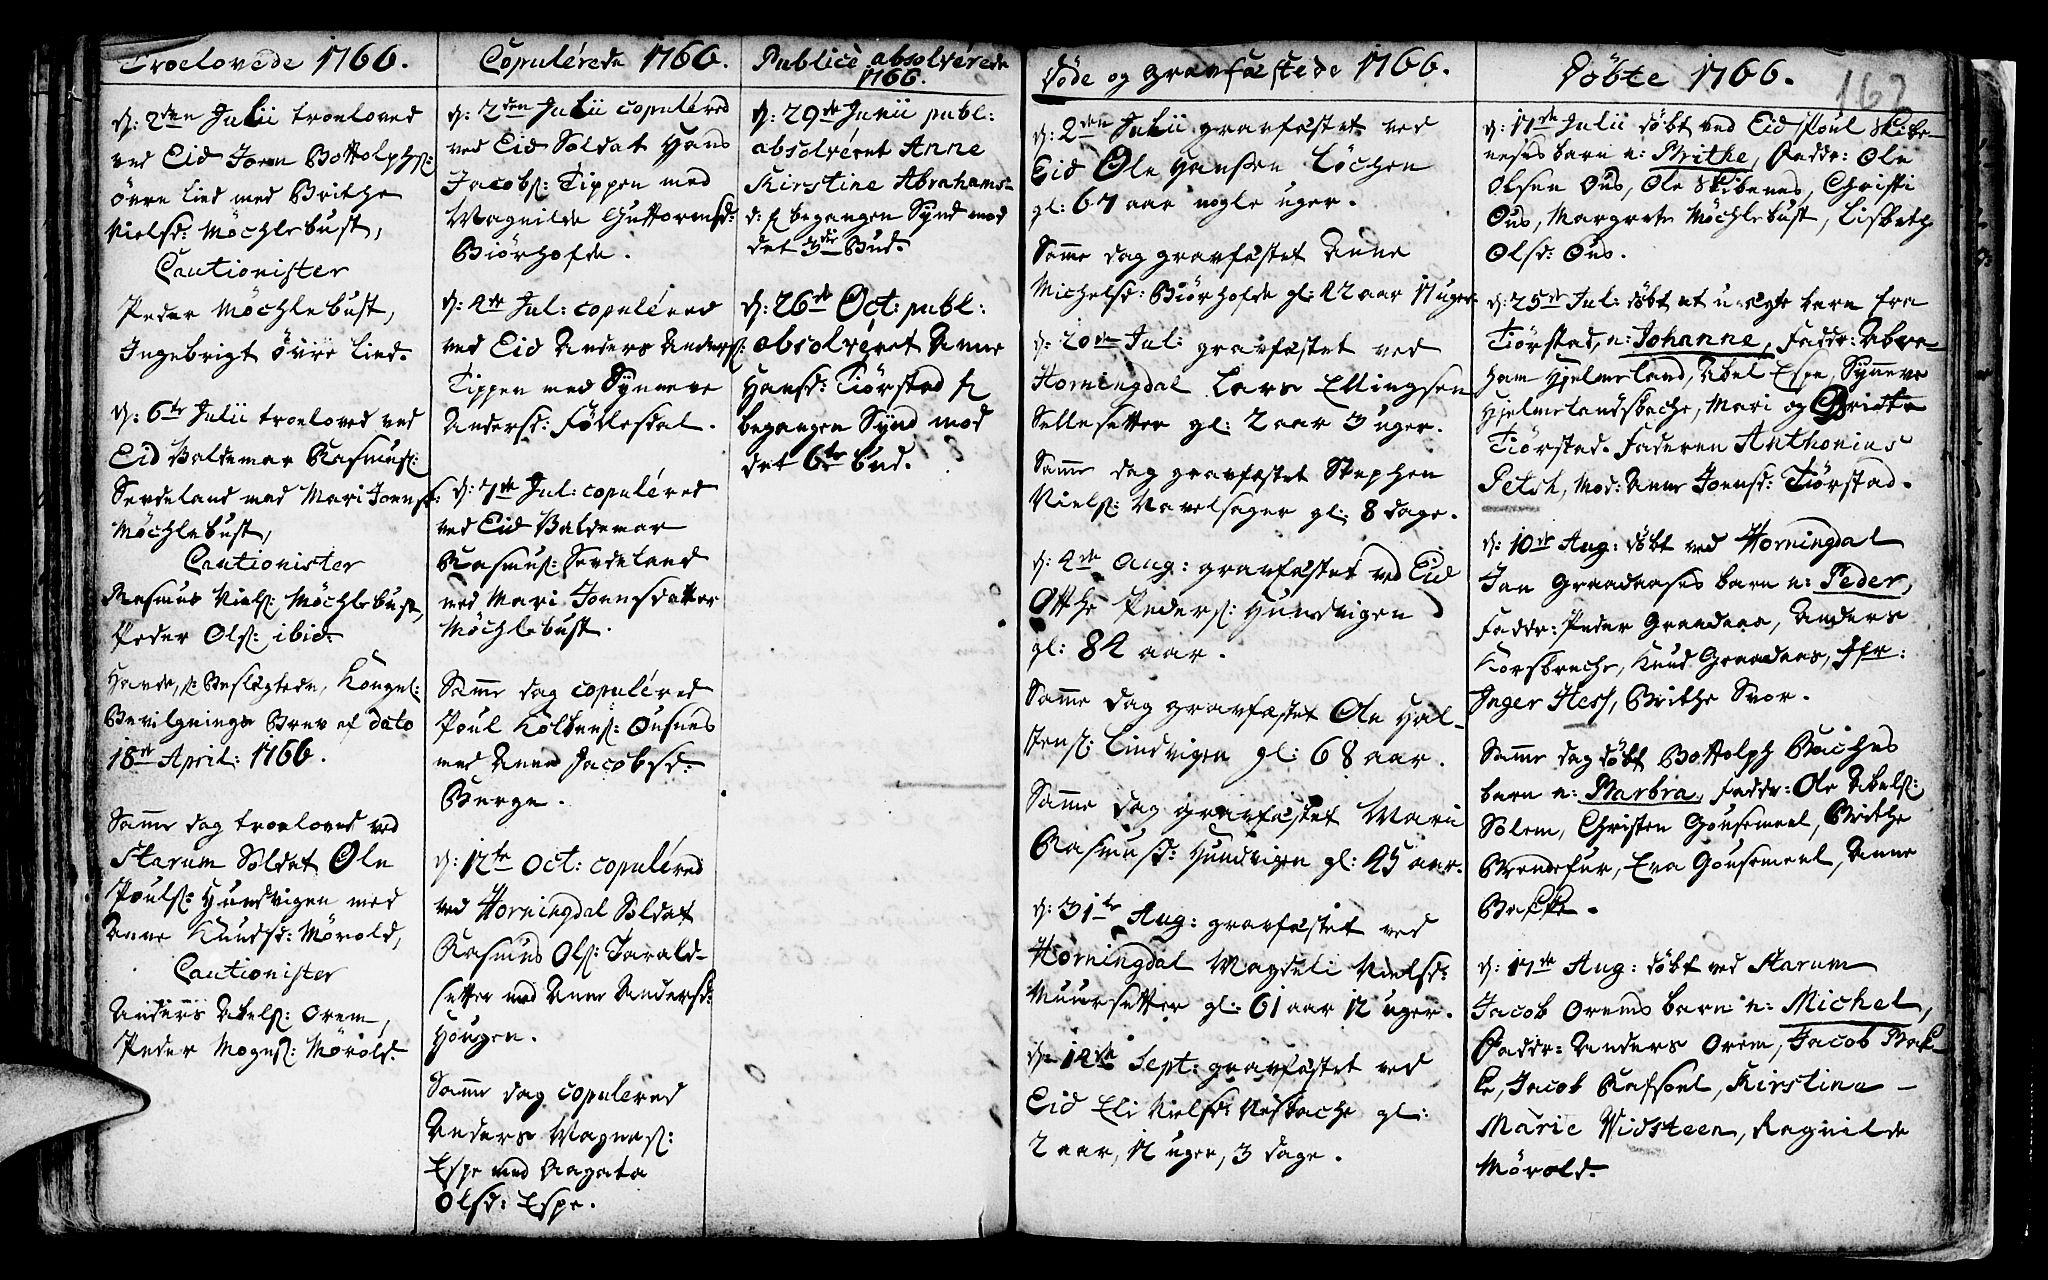 Troelovede 1766.
d: 2den Julii troeloved
ved Eid Joen Bottolphs:
övre Lied med Brithe
Nielsd: Möchlebust,
Cautionister
Peder Möchlebust,
Ingebrigt övre Lied.
d: 6te Julii troeloved ved
Eid Baldemar Rasmus:
Serdeland med Mari Joensd:
Möchlebust,
Cautionister
Rasmus Niels: Möchlebust,
Peder Ols: ibid:
Havde, Beslægtede, Kongel:
Bevilgnings Brev af dato
18de April: 1766.
Samme dag troeloved ved
Starum Soldat Ole
Pouls: Hundvigen med
Anne Knudsd: Mörold,
Cautionister
Anders Abels: Orem,
Peder Mogns: Mörold.
Copulérede 1766.
d: 2den Julii copuléred
ved Eid Soldat Hans
Jacobs: Tippen med
Magnilde Guttormsd:
Biörhofde.
d: 4de Jul: copuléred
ved Eid Anders Anders:
Tippen med Synneve
Andersd: Föllesdal.
d: 7de Jul: copuléred
ved Eid Baldemar
Rasmus: Serdeland
med Mari Joensdatter
Möchlebust.
Samme dag copuléred
Poul Koldens: Ousnes
med Anne Jacobsd:
Berge.
d: 12te Oct: copuléred
ved Horningdal Soldat
Rasmus Ols: Tarald-
setter med Anne Andersd:
Hougen.
Samme dag copulered
Anders Magnes:
Espe med Aagata
Olsd: Espe.
Publicè absolvérede
1766.
d: 29de Junii publ:
absolvéret Anne
Kirstine Abrahams-
d: f begangen Synd mod
det 3die Bud.
d: 26de Oct: publ:
absolvéret Anne
Hansd: Tiörstad f
begangen Synd mod
det 6te bud.
Döde og gravfæstede 1766.
d: 2den Julii gravfæstet ved
Eid Ole Hansen Löchen
gl: 67 aar nogle uger.
Samme dag gravfæstet Anne
Michelsd: Biörhofde gl: 42 aar 17 uger.
d: 20de Jul: gravfæstet ved
Horningdal Lars Ellingsen
Sellesetter gl: 2 aar 3 uger.
Samme dag gravfæstet Stephen
Niels: Navelsager gl: 8 dage.
d: 4de Aug: gravfæstet ved Eid
Otthe Peders: Hundvigen
gl: 84 aar.
Samme dag gravfæstet Ole Hal-
stens: Lindvigen gl: 68 aar.
Samme dag gravfæstet Mari
Rasmusd: Hundvigen gl: 45 aar.
d: 31te Aug: gravfæstet ved
Horningdal Magdeli Nielsd:
Muursetter gl: 61 aar 12 uger.
d: 14de Sept: gravfæstet ved
Eid Eli Nielsd: Nesbache gl:
2 aar, 12 uger, 3 dage.
Döbte 1766.
162
d: 17de Julii döbt ved Eid Poul Skibe-
neses barn n: Brithe, Faddr: Ole
Olsen Ous, Ole Skibenes, Christi
Ous, Margrete Möchlebust, Lisbeth
Olsd: Ous.
d: 25de Jul: döbt et u-ægte barn fra
Tiörstad, n: Johanne, Faddr: Abra-
ham Hjelmeland, Abel Espe, Synneve
Hjelmelandsbache, Mari og Brithe
Tiörstad. Faderen Anthonius
Petsh, Mod: Anne Joensd: Tiörstad.
d: 10de Aug: döbt ved Horningdal
Jan Graadaases barn n: Peder,
Faddr: Peder Graadaas, Anders
Korsbreche, Knud Graadaas, Jfr:
Inger Hess, Brithe Svor.
Samme dag döbt Bottolph Baches
barn n: Barbra, Faddr: Ole Abels:
Solem, Christen Gousemeel, Brithe
Brendefur, Eva Gousemeel, Anne
Bakke.
d: 17de Aug: döbt ved Starum
Jacob Orems barn n: Michel,
Faddr: Anders Orem, Jacob Bak-
ke, Jacob Rafsoel, Kirstine -
Marie Widsteen, Ragnilde
Mörold.